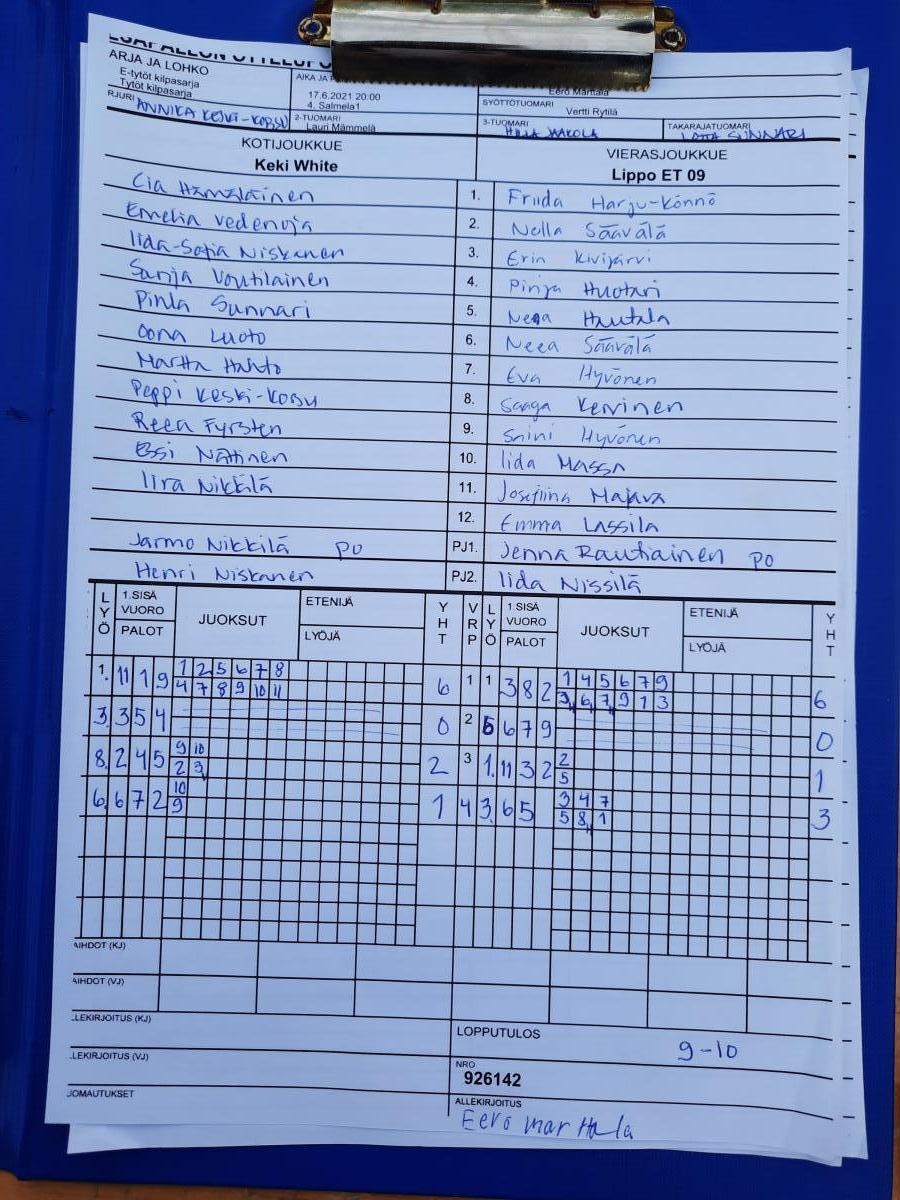 ARJA JA LOHKO
E-tytöt kilpasarja
Tytöt kilpasarja
AIKA JA
17.6.2021 20:00
4. Salmela1
Eero Marttala
SYÖTTÖTUOMARI
Vertti Rytilä
PJURI ANNIKA KESKI-KORSU
2-TUOMARI
Lauri Mämmelä
3-TUOMARI
JAAKOLA
TAKARAJATUOMARI
LOTTA SUNNARI
KOTIJOUKKUE
Keki White
VIERASJOUKKUE
Lippo ET 09
Cia Hämäläinen 1. Friida Harju-Könnö
Emelia Vedenoja 2. Nella Säävälä
Iida-Sofia Niskanen 3. Erin Kivijärvi
Sanja Voutilainen 4. Pinja Huotari
Pinla Sunnari 5. Neea Hautala
Oona Luoto 6. Neea Säävälä
Martta Hahto 7. Eva Hyvönen
Peppi Keski-Korsu 8. Saaga Kervinen
Reea Fyrsten 9. Snini Hyvönen
Essi Nätinen 10. Iida Massa
Iira Nikkilä 11. Josefiina Majava
12. Emma Lassila
Jarmo Nikkilä PO PJ1. Jenna Rautiainen PO
Henri Niskanen PJ2. Iida Nissilä
LYÖ 1.SISÄ VUORO PALOT JUOKSUT ETENIJÄ LYÖJÄ YHT VRP LYÖ 1.SISÄ VUORO PALOT JUOKSUT ETENIJÄ LYÖJÄ YHT
1. 11 1 9 1 2 5 6 7 8 6 1 1 3 8 2 1 4 5 6 7 9 6
4 7 8 9 10 11 3 6 7 9 1 3
3. 3 5 4 0 2 5 6 7 9 0
8. 2 4 5 9 10 2 3 1. 11 3 2 2 1
2 3 5
6. 6 7 2 10 1 4 3. 6 5 3 4 7 3
9 5 8 1
AIHDOT (KJ)
AIHDOT (VJ)
LLEKIRJOITUS (KJ)
LLEKIRJOITUS (VJ)
JOMAUTUKSET
LOPPUTULOS
9-10
NRO
926142
ALLEKIRJOITUS
Eero Marttala